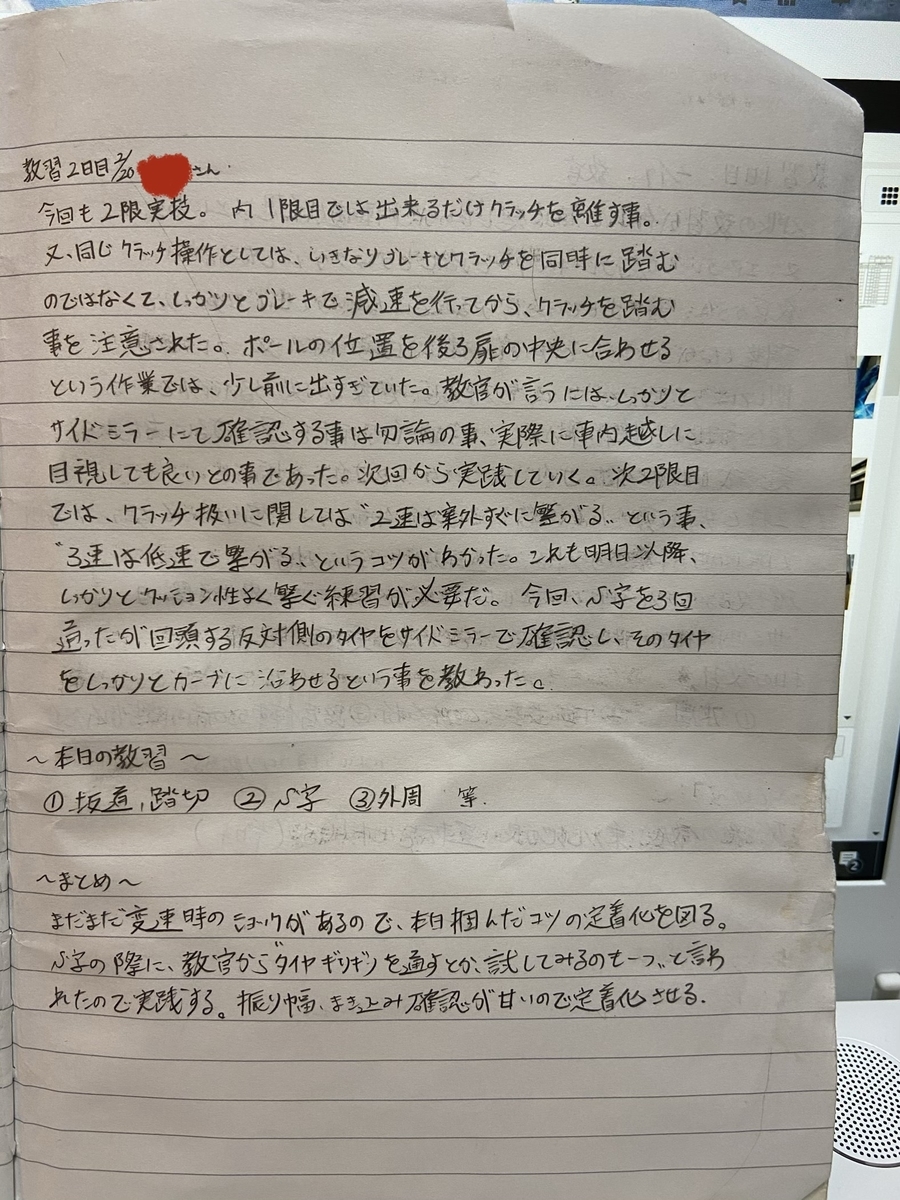 教習2日目 2/20 さん.
今回も2限実技。内1限目では出来るだけクラッチを離す事。
又、同じクラッチ操作としては、いきなりブレーキとクラッチを同時に踏む
のではなくて、しっかりとブレーキで減速を行ってから、クラッチを踏む
事を注意された。ポールの位置を後ろ扉の中央に合わせる
という作業では、少し前に出すぎていた。教官が言うには、しっかりと
サイドミラーにて確認する事は勿論の事、実際に車内越しに
目視しても良いとの事であった。次回から実践していく。次2限目
では、クラッチ扱いに関しては〝2速は案外すぐに繋がる〟という事、
〝3速は低速で繋がる〟というコツがわかった。これも明日以降、
しっかりとクッション性よく繋ぐ練習が必要だ。今回、S字を3回
通ったが回頭する反対側のタイヤをサイドミラーで確認し、そのタイヤ
をしっかりとカーブに沿わせるという事を教わった。
～本日の教習～
①坂道,踏切 ②S字 ③外周 等.
～まとめ～
まだまだ変速時のショックがあるので、本日掴んだコツの定着化を図る。
S字の際に、教官から〝タイヤギリギリを通すとか、試してみるのも一つ〟と言わ
れたので実践する。振り幅、まき込み確認が甘いので定着化させる.
2